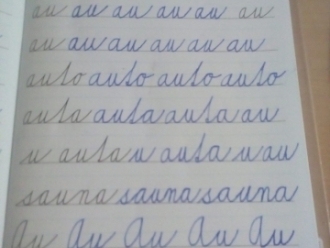 au au au au au au
au au au au au au
auto auto auto auto
auta auta auta au
u auta u auta u au
sauna sauna sauna
Au Au Au Au Au